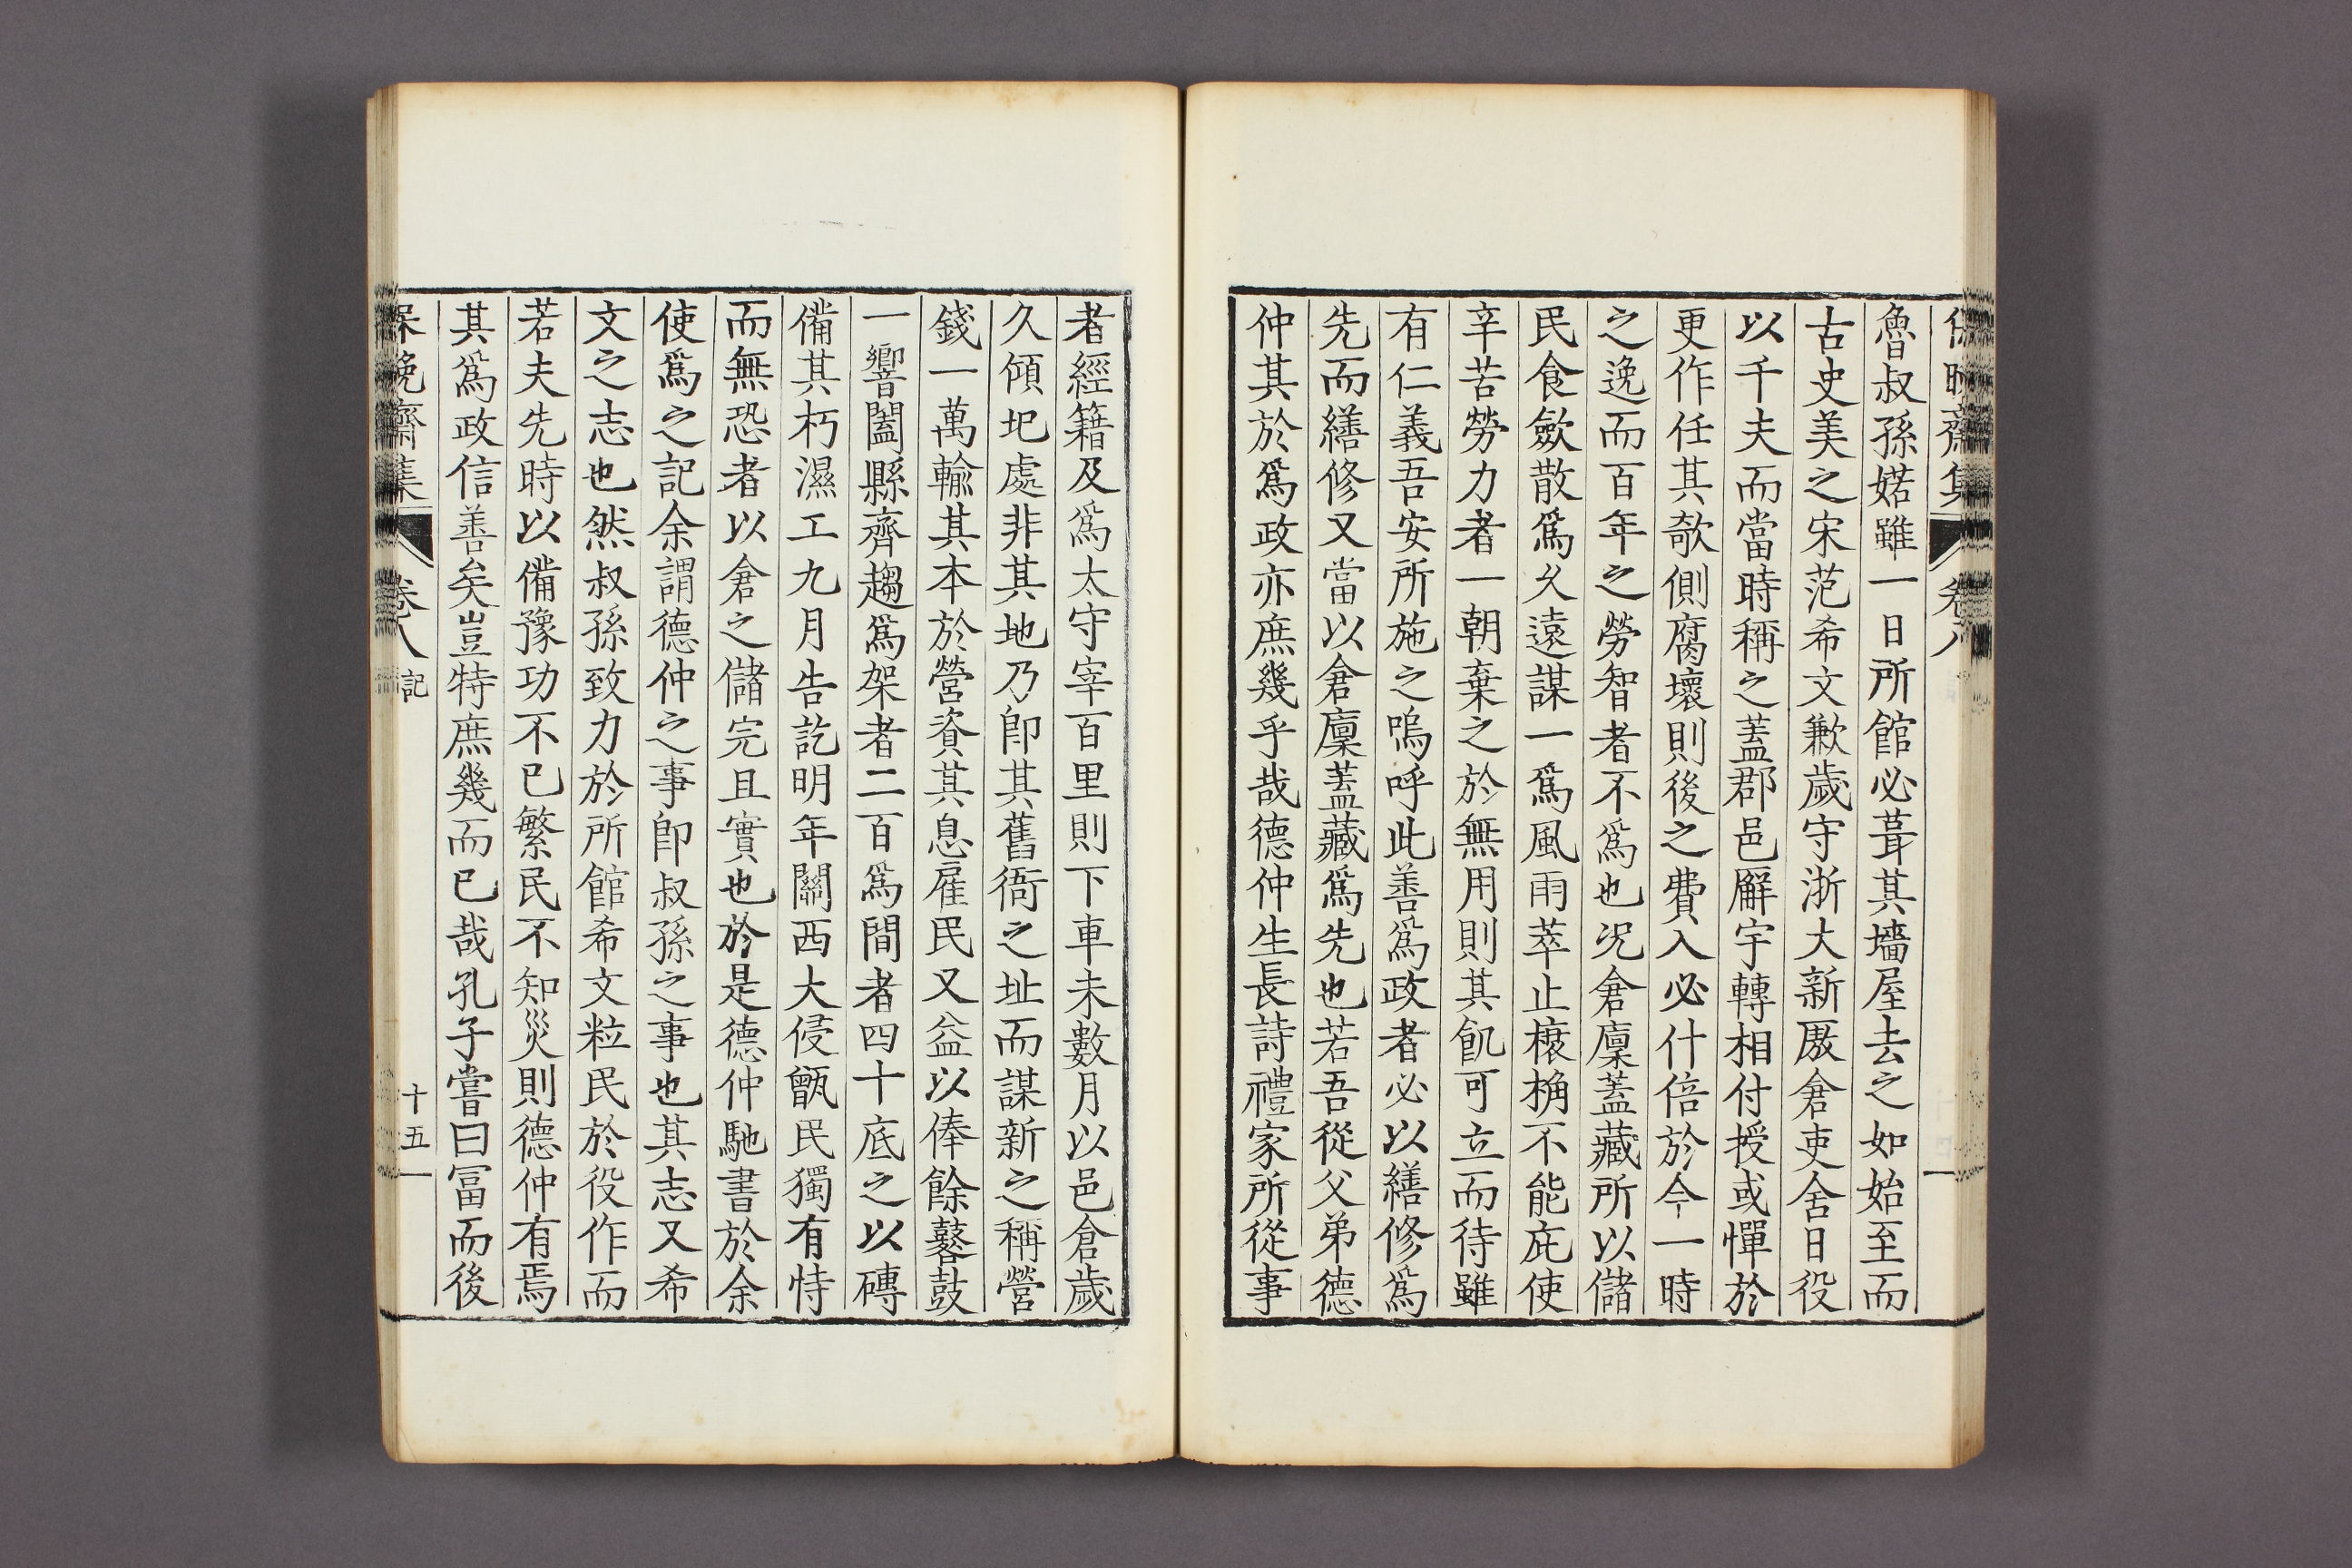 保晩齋集 卷八
魯叔孫婼雖一日所館必葺其墻屋去之如始至而
古史美之宋范希文歉歲守浙大新厫倉吏舍日役
以千夫而當時稱之蓋郡邑廨宇轉相付授或憚於
更作任其欹側腐壞則後之費入必什倍於今一時
之逸而百年之勞智者不爲也况倉廩蓋藏所以儲
民食歛散爲久遠謀一爲風雨萃止榱桷不能庇使
辛苦勞力者一朝棄之於無用則其飢可立而待雖
有仁義吾安所施之嗚呼此善爲政者必以繕修爲
先而繕修又當以倉廩蓋藏爲先也若吾從父弟德
仲其於爲政亦庶幾乎哉德仲生長詩禮家所從事
者經籍及爲太守宰百里則下車未數月以邑倉歲
久傾圯處非其地乃卽其舊衙之址而謀新之稱營
錢一萬輸其本於營資其息雇民又益以俸餘鼛鼓
一響闔縣齊趨爲架者二百爲間者四十底之以磚
備其朽濕工九月告訖明年關西大侵甑民獨有恃
而無恐者以倉之儲完且實也於是德仲馳書於余
使爲之記余謂德仲之事卽叔孫之事也其志又希
文之志也然叔孫致力於所館希文粒民於役作而
若夫先時以備豫功不已繁民不知災則德仲有焉
其爲政信善矣豈特庶幾而已哉孔子嘗曰冨而後
保晩齋集 卷八 記 十五